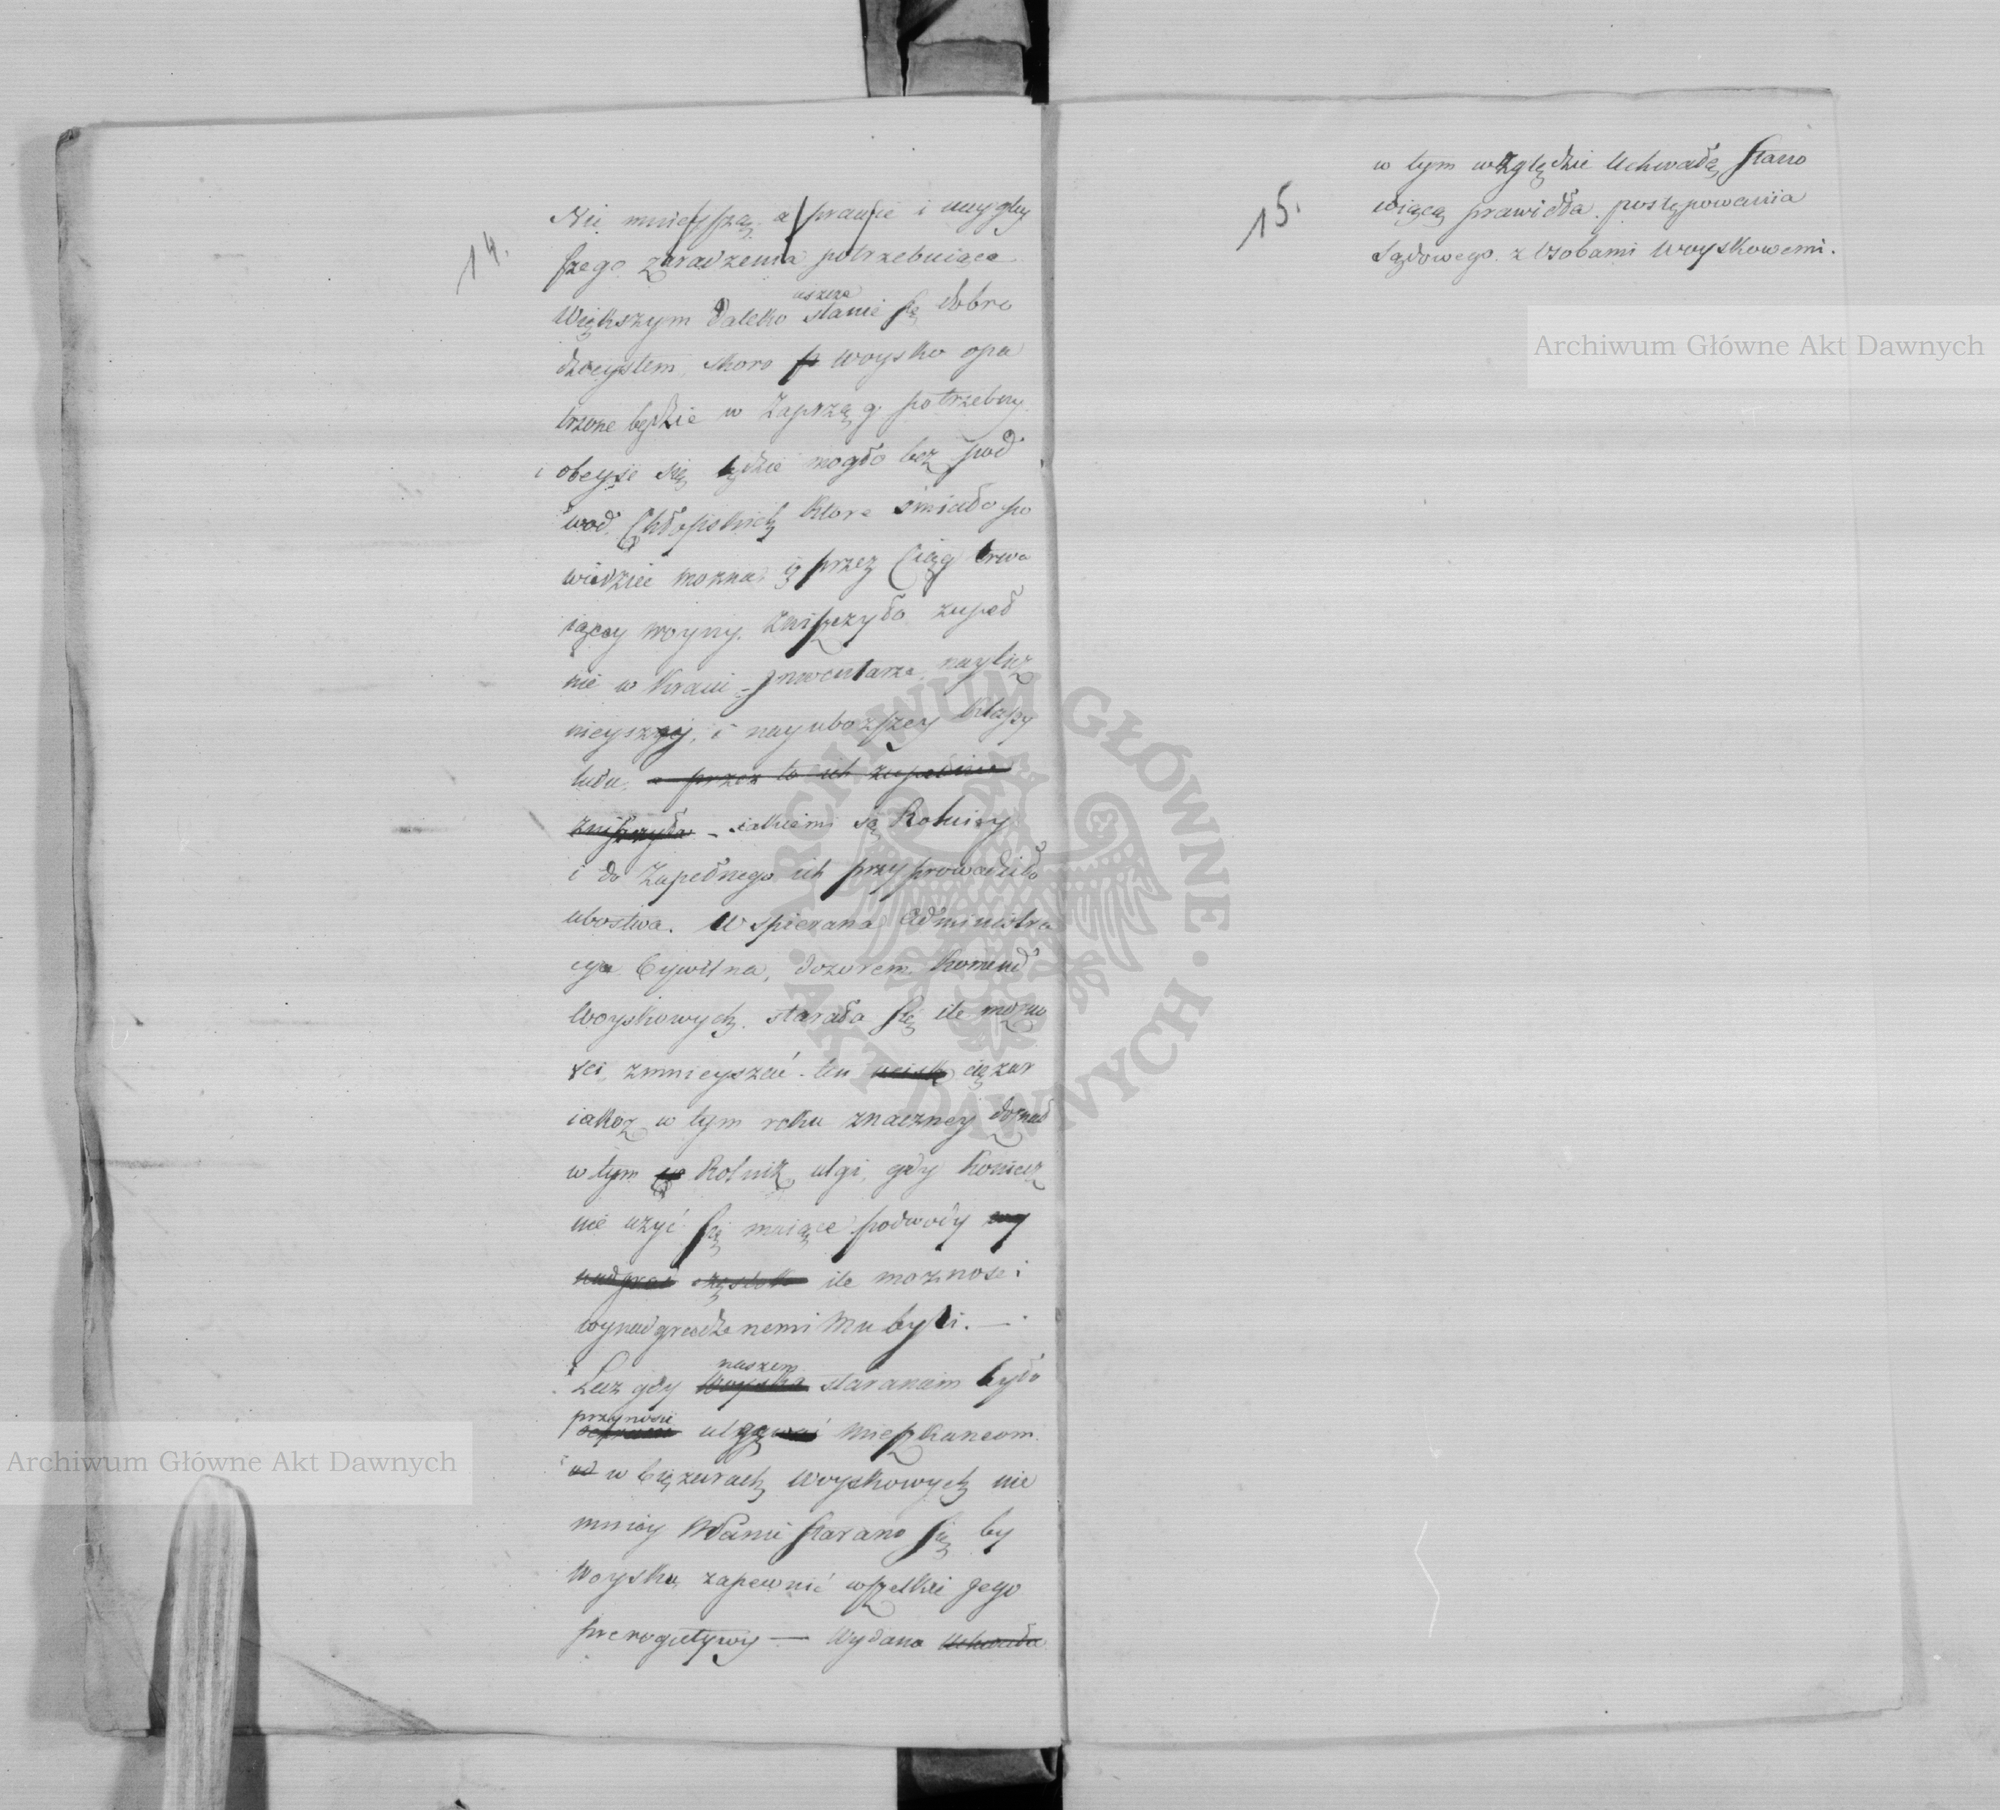 14.
Nie mnieyszą a prawie i nayglęb
szego zaradzenia potrzebuiące
uszcze
Większym daleko stanie się dobro
dzieystem, skoro woysko opa
trzone będzie w Zaprzą g. potrzebny
i obeyść się będzie mogło bez pod
wod, Chłopskich, ktore śmiało po
wiedzieć można iż przez Ciąg trwa
iącey woyny, zniszczyło zupeł
nie w Kraiu Jnwentarze naylicz
nieyszey, i nayubozszey klassy
ludu, a przez to ich zupełnie
zniszczyło - iakiemi są Rolnicy
i do Zupełnego ich przyprowadziło
ubostwa. Wspierana Administra
cya Cywilna, dozorem komend
Woyskowych, starała się ile możno
ści, zmnieyszać ten ucisk ciężar
iakoż w tym roku znaczney doznał
w tym Rolnik ulgi, gdy koniecz
nie użyć się maiące podwody wy
nadgrod ile możności
wynadgrodzonemi Mu były. —
naszem
Lecz gdy Woyska staraniem było
przynosić
ulgę Mieszkancom.
od w Ciężarach Woyskowych nie
mniey starano się by
Woysku zapewnić wszelkie Jego
prerogatywy — Wydano Uchwała
15.
w tym względzie Uchwałę, stano
wiącą prawidła postępowania
Sądowego z Osobami Woyskowemi.
Archiwum Główne Akt Dawnych
Archiwum Główne Akt Dawnych
ARCHIWUM GŁÓWNE · AKT DAWNYCH ·